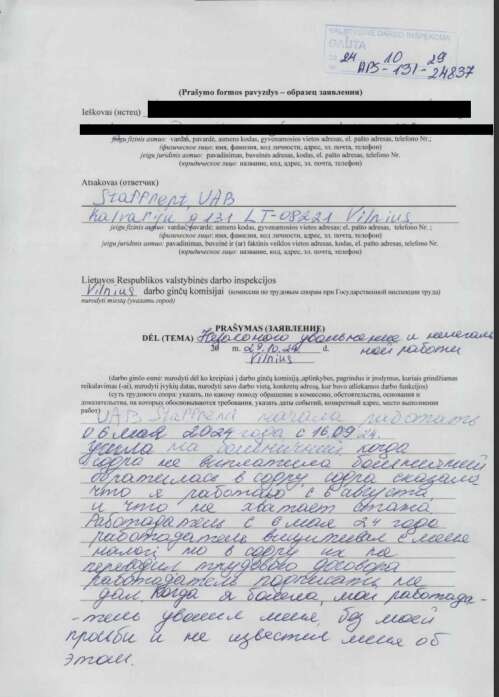 VALSTYBINĖ DARBO INSPEKCIJA
GAUTA
24 10 29
APS-131-24837
(Prašymo formos pavyzdys – образец заявления)
Ieškovas (истец)
jeigu fizinis asmuo: vardas, pavardė, asmens kodas, gyvenamosios vietos adresas, el. pašto adresas, telefono Nr.;
(физическое лицо: имя, фамилия, код личности, адрес, эл. почта, телефон)
jeigu juridinis asmuo: pavadinimas, buveinės adresas, kodas, el. pašto adresas, telefono Nr.
(юридическое лицо: название, код, адрес, эл. почта, телефон)
Atsakovas (ответчик)
Staffrent, UAB
Kalvarijų g 131 LT-08221 Vilnius
jeigu fizinis asmuo: vardas, pavardė, asmens kodas, gyvenamosios vietos adresas, el. pašto adresas, telefono Nr.;
(физическое лицо: имя, фамилия, код личности, адрес, эл. почта, телефон)
jeigu juridinis asmuo: pavadinimas, buveinė ir (ar) faktinis veiklos vietos adresas, kodas, el. pašto adresas, telefono Nr.
(юридическое лицо: название, код, адрес, эл. почта, телефон)
Lietuvos Respublikos valstybinės darbo inspekcijos
Vilnius darbo ginčų komisijai (комиссии по трудовым спорам при Государственной инспекции труда)
nurodyti miestą (указать город)
PRAŠYMAS (ЗАЯВЛЕНИЕ)
DĖL (ТЕМА) Незаконого увольнение и нелегаль
ной работы
m. 29.10.24 d.
Vilnius
(darbo ginčo esmė: nurodyti dėl ko kreipiasi į darbo ginčų komisiją, aplinkybes, pagrindus ir įrodymus, kuriais grindžiamas
reikalavimas (-ai), nurodyti įvykių datas, nurodyti savo darbo vietą, konkretų adresą, kur buvo atliekamos darbo funkcijos)
(суть трудового спора: указать, по какому поводу обращение в комиссию, обстоятельства, основания и
доказательства, на которых обосновываются требования, указать даты событий, конкретный адрес, место выполнения
работ)
UAB, Staffrent начала работать
06 мая 2024 года с 16.09 24.
ушла на больничный, когда
содра не выплатила больничный
обратилась в содру, содра сказала
что я работаю с 6 августа,
и что не хватает стажа
Работадатель с 6 мая 24 года
работадатель вищитывал с меня
налоги но в содру их не
переводил трудового договора
работадатель подписать не
дал. Когда я болела, мой работада-
-тель уволил меня, без моей
прозьби и не известил меня об
этом.